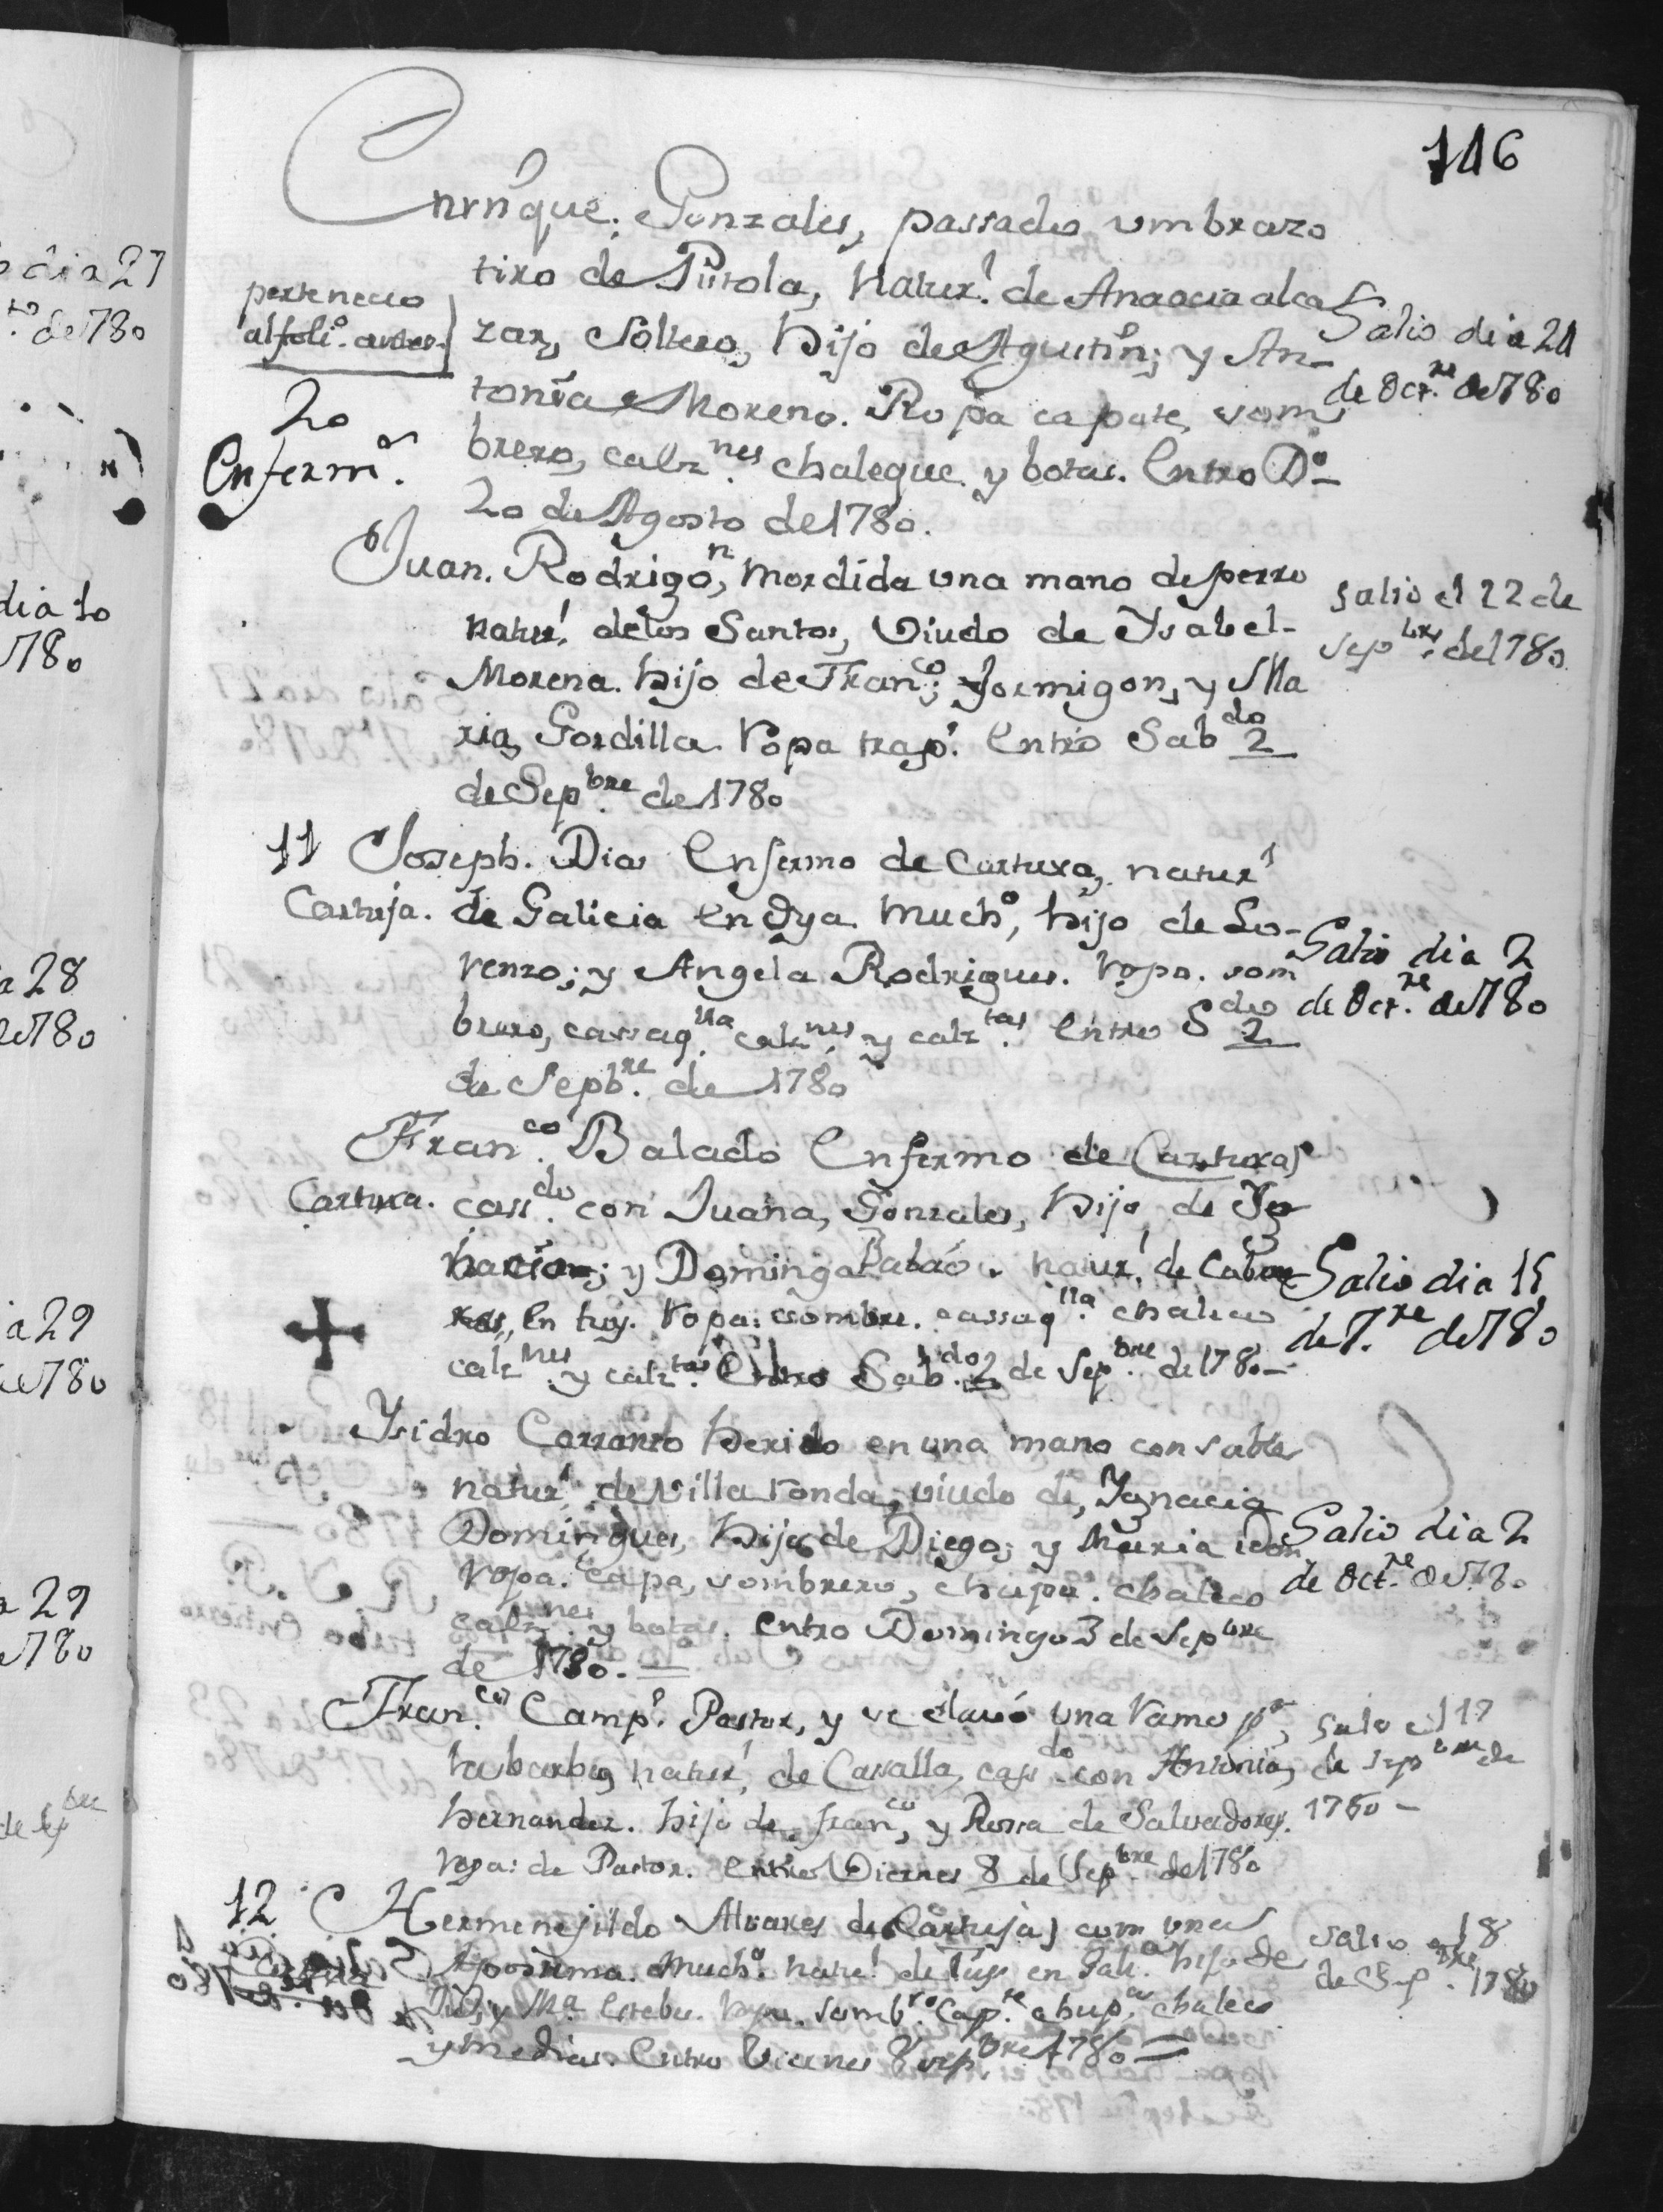 116
Enrrique. Gonzales, passado um brazo
tiro de Pistola, Natur.l de alca
zar, Soltero, hijo de Agustin; y An-
tonia Moreno. Ropa capote, som
brero, calz.nes chaleque y botas. Entro D.o
20 de Agosto de 1780.
pertenecio
20
Enferm.a
Salio dia 21
de Oct.re de 780
Juan. Rodrigo,n mordida una mano de perro
natur.l de los Santos, Viudo de Ysabel-
Morena. hijo de Fran.co; Jormigon, y Ma
ria, Gordilla. Ropa trap.s Entro Sab.do 2
de Sep.bre de 1780
Salio el 22 de
Sep.bre de 1780
11 Joseph. Dias Enfermo de Cartuxa, natur.l
Cartuja. de Galicia en Oya. Much.o, hijo de Lo-
renzo; y Angela Rodrigues. Ropa. som
brero, cassaq.lla calz.nes y calz.tas Entro S.do 2
de Sepb.re de 1780
Salio dia 2
de Oct.re de 780
Fran.co Balado Enfermo de Cartuxa
Cartuxa. cass.do con Juana, Gonzales, hijo de Yg
nacio; y Dominga natur.l de
En tuy. Ropa: sombre. cassaq.lla chaleco
calz.nes y calz.tas Entro Sab.do 2 de Sep.bre de 1780-
Salio dia 15
de 7.re de 780
Ysidro Carranzo herido en una mano con sable
natur.l de Villa ronda, viudo de, Ygnacia
Domingues, hijo de Diego; y Maria
Ropa. capa, sombrero, chupa. chaleco
calz.nes y botas. Entro Domingo 3 de Sep.bre
de 1780.-
Salio dia 2
de Oct.re de 780
Fran.co Camp.o Pastor, y se clavó una Ramo p.r
la barba, natur.l de Cavalla, cass.do con Antonia,
hernandez. hijo de fran.co, y Rossa de Salvadores.
Ropa: de Pastor. Entro Viernes 8 de Sep.bre de 1780
Salio el 17
de Sep.bre de
1780-
12 Hermenejildo Alvares de Cartuja, com una
Aposthema. Much.o natu.l de tuy en Gali.a hijo de
y M.a Esteba. Ropa. somb.ro Cap.te chup.a chaleco
y medias. Entro Viernes 8 sep.bre 1780=
Salio el 8
de 1780